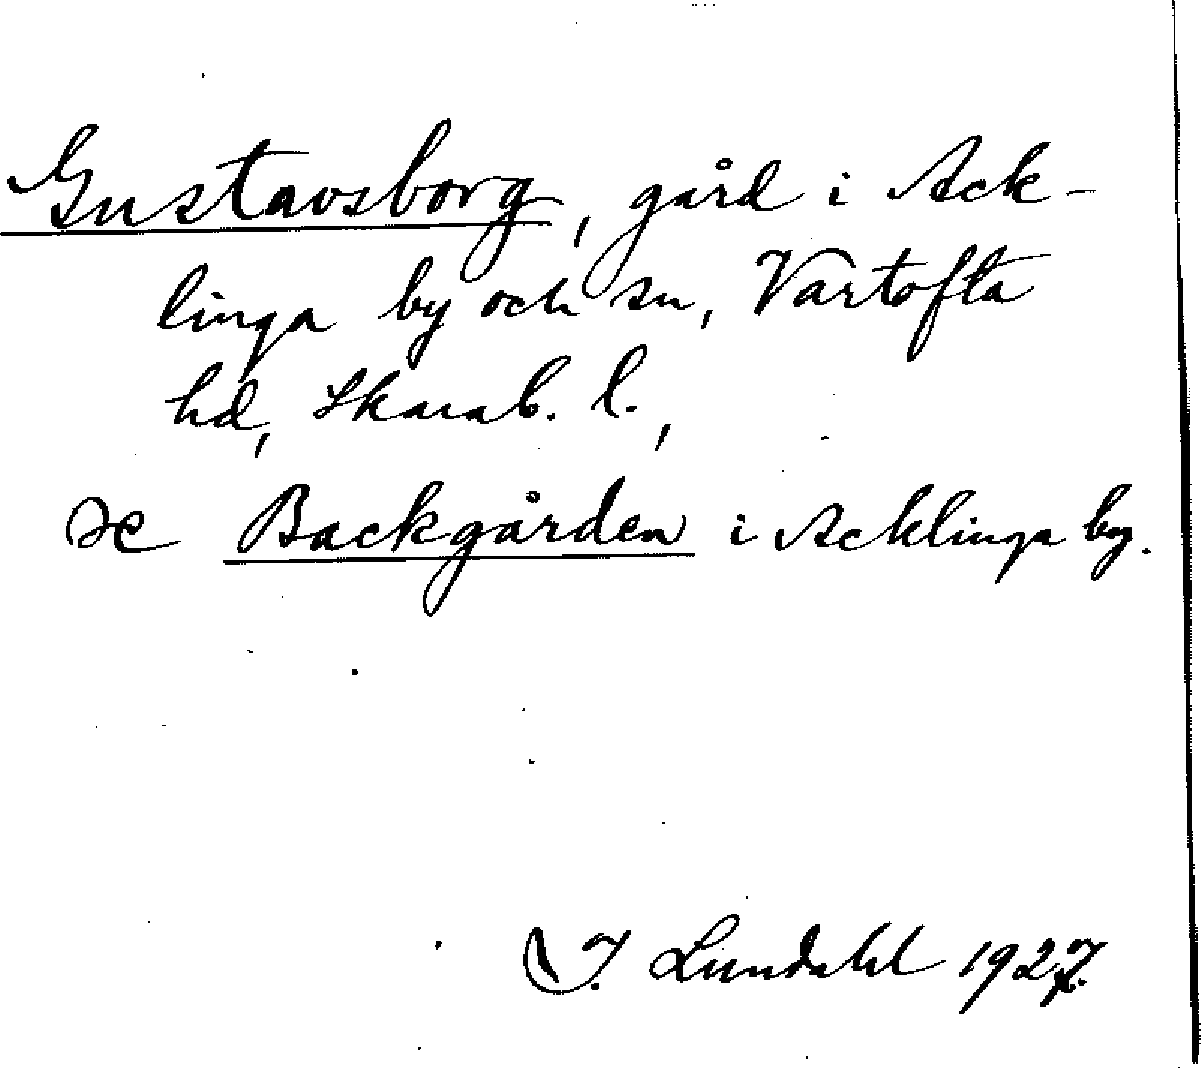 Gustavsborg, gård i Ack-
linga by och sn, Vartofta
hd, Skarab. l.,
se Backgården i Acklinga by.
I. Lundahl 1927.